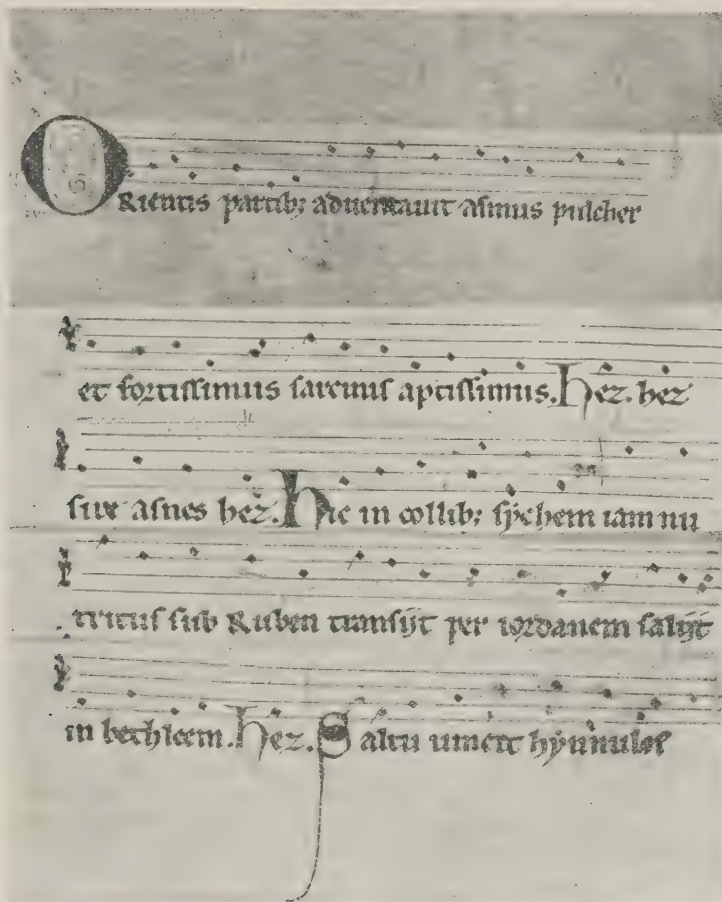 Orientis partib; aduentauit asinus pulcher
et fortissimus sarcinis aptissimus. hez. hez
sire asnes hez. hic in collib; sychem iam nu
tritus sub Ruben transijt per iordanem salijt
in bethleem. hez. Saltu uincit hynnulos